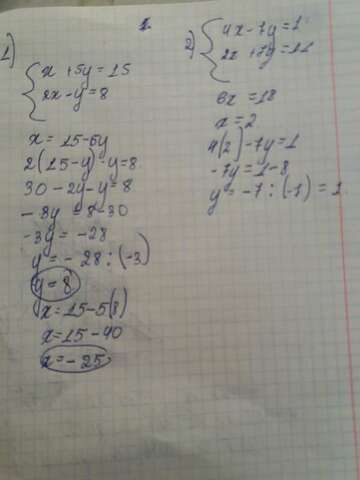 1.
1)
x + 5y = 15
2x - y = 8
x = 15 - 5y
2(15 - y) - y = 8
30 - 2y - y = 8
- 3y = 8 - 30
- 3y = - 28
y = - 28 : (-3)
y = 8
x = 15 - 5(8)
x = 15 - 40
x = - 25
2)
4x - 7y = 1
2x + 7y = 11
6x = 18
x = 2
4(2) - 7y = 1
- 7y = 1 - 8
y = - 7 : (-1) = 1